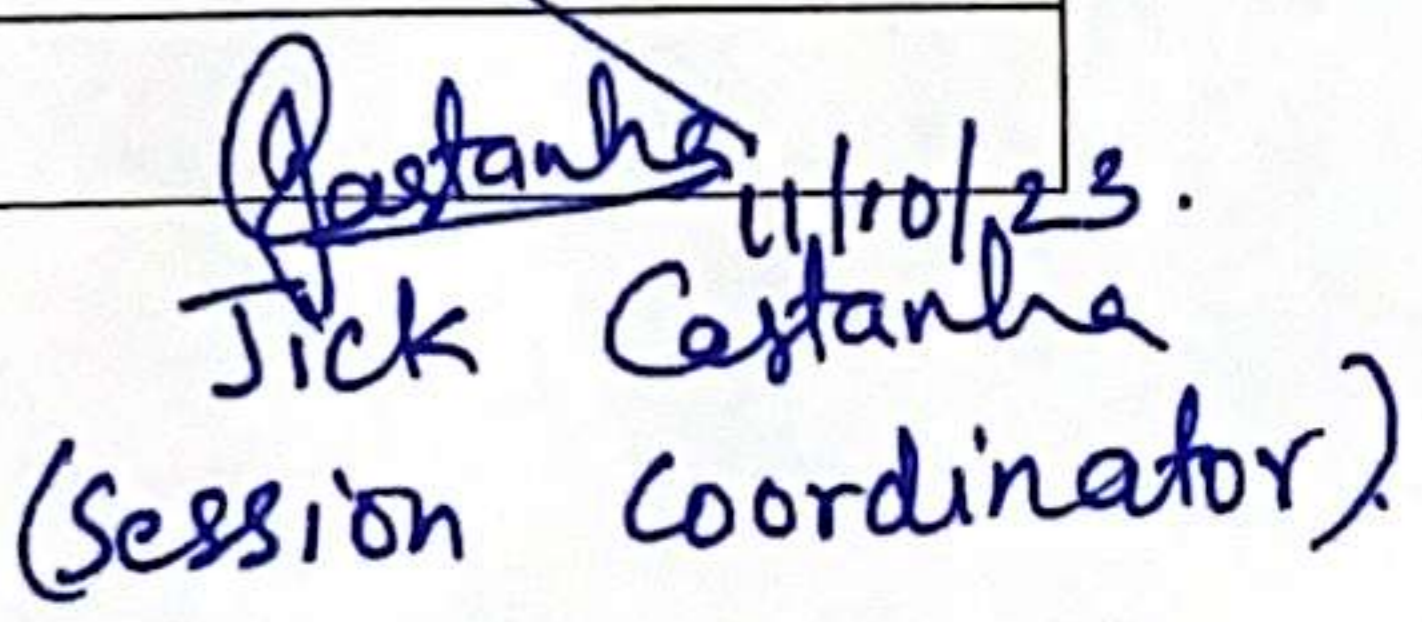 JCastanha 11/10/23.
Jick Castanha
(Session Coordinator).